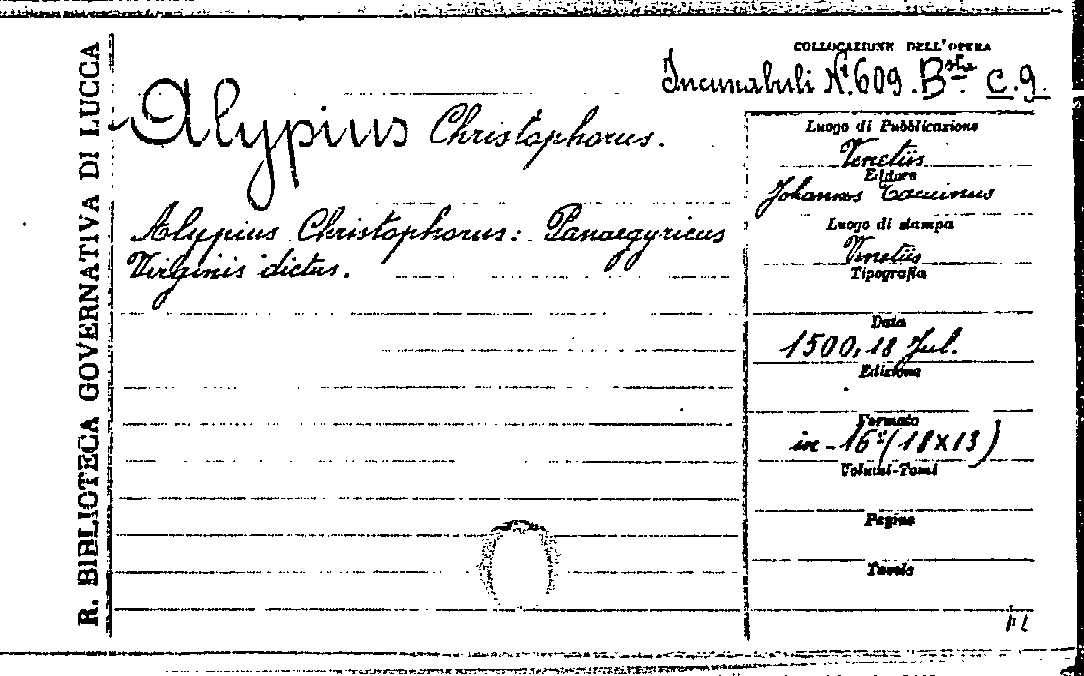 R. BIBLIOTECA GOVERNATIVA DI LUCCA
COLLOCAZIONE DELL'OPERA
Incunabuli N.° 609. Bsta C. 9.
Alypius Christophorus.
Alypius Christophorus: Panaegyricus
Virginis dictus.
Luogo di Pubblicazione
Venetiis
Editore
Johannes Tacuinus
Luogo di stampa
Venetiis
Tipografia
Data
1500, 18 Jul.
Edizione
Formato
in-16° (18x13)
Volumi-Tomi
Pagine
Tavole